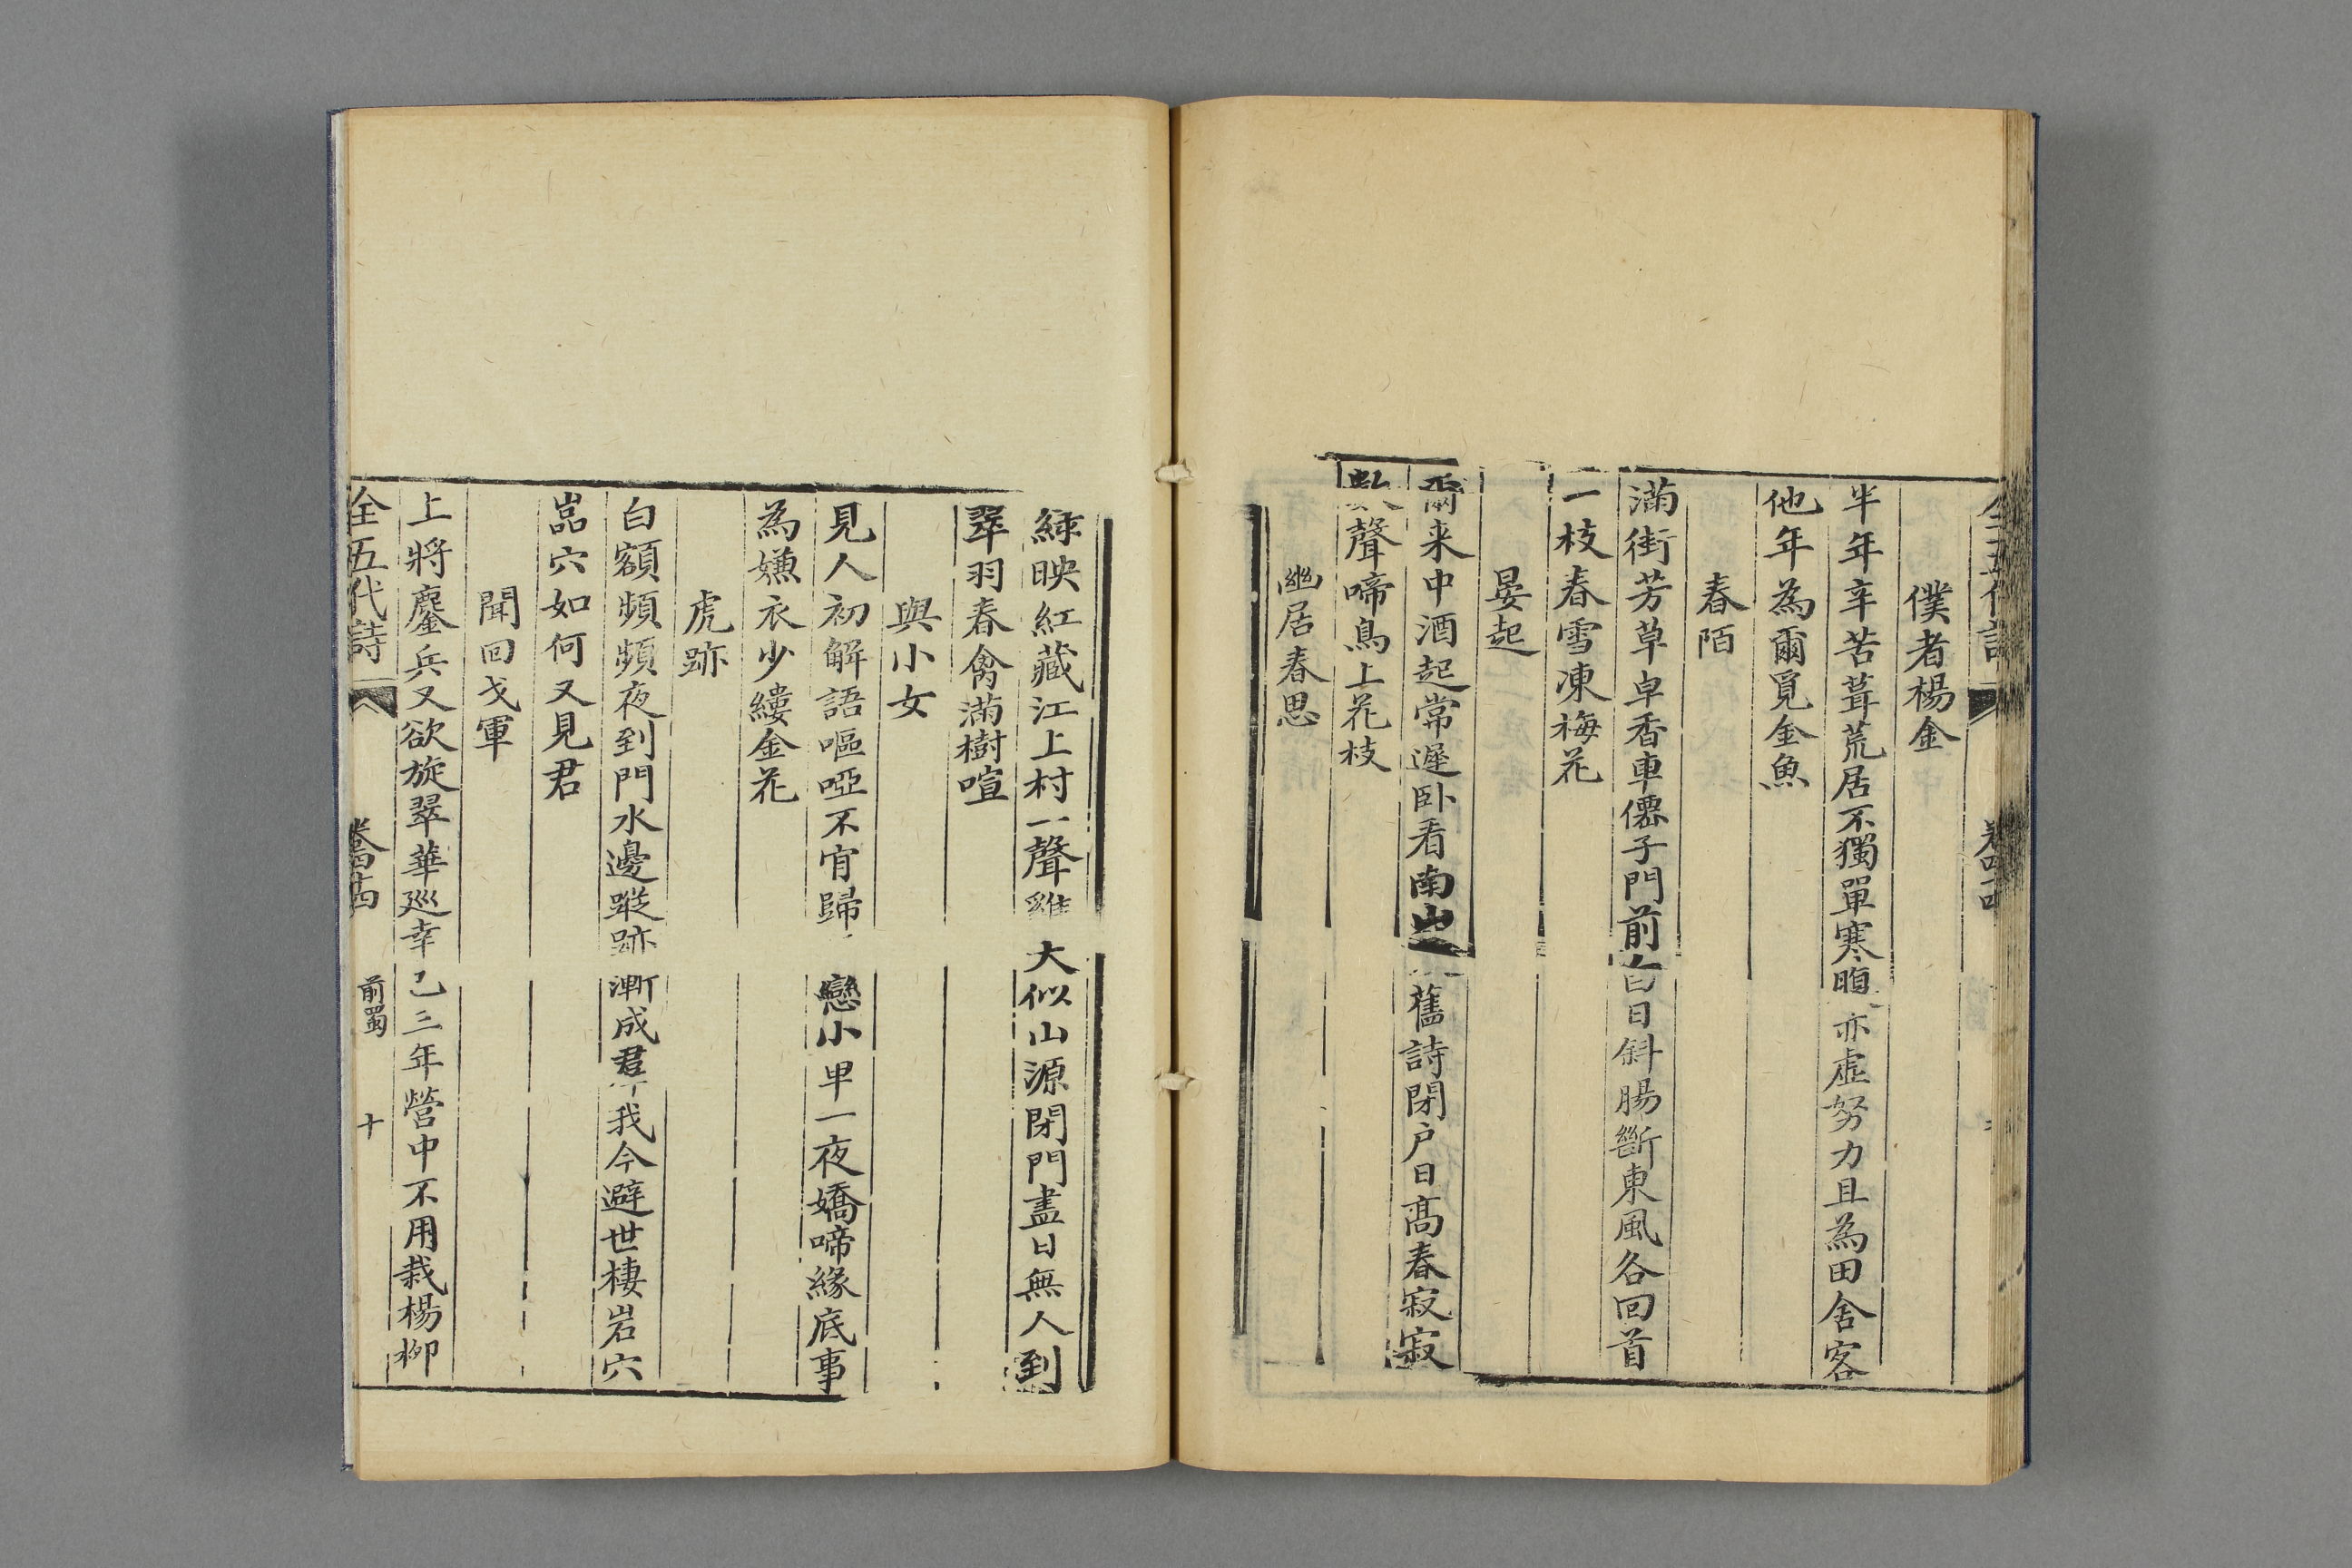 僕者楊金
半年辛苦葺荒居不獨單寒腹亦虛努力且為田舍客
他年為爾覓金魚
春陌
滿街芳草卓香車僊子門前白日斜腸斷東風各回首
一枝春雪凍梅花
晏起
爾来中酒起常遲卧看南山舊詩閉户日髙春寂寂
數聲啼鳥上花枝
幽居春思
綠映紅藏江上村一聲雞犬似山源閉門盡日無人到
翠羽春禽滿樹喧
與小女
見人初解語嘔啞不肯歸戀小車一夜嬌啼緣底事
為嫌衣少縷金花
虎跡
白額頻頻夜到門水邊蹤跡漸成羣我今避世棲岩穴
嵓穴如何又見君
聞回戈軍
上將鏖兵又欲旋翠華巡幸已三年營中不用栽楊柳
全五代詩 卷四十四 前蜀 十